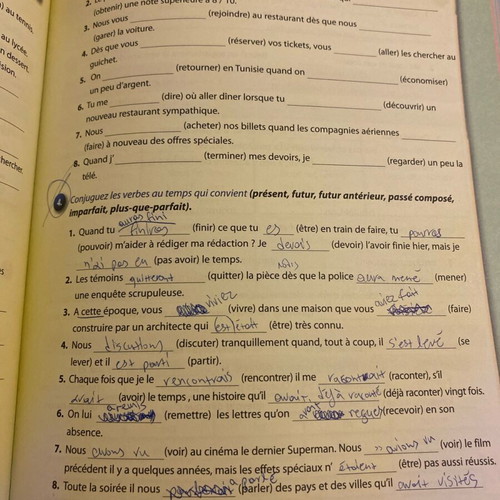 ) au tennis.
au lycée.
n dessert.
sion.
hercher
(obtenir) une note supérieure à 8 / 10.
3. Nous vous ________ (rejoindre) au restaurant dès que nous ________
(garer) la voiture.
4. Dès que vous ________ (réserver) vos tickets, vous ________ (aller) les chercher au
guichet.
5. On ________ (retourner) en Tunisie quand on ________ (économiser)
un peu d'argent.
6. Tu me ________ (dire) où aller dîner lorsque tu ________ (découvrir) un
nouveau restaurant sympathique.
7. Nous ________ (acheter) nos billets quand les compagnies aériennes ________
(faire) à nouveau des offres spéciales.
8. Quand j'________ (terminer) mes devoirs, je ________ (regarder) un peu la
télé.
Conjuguez les verbes au temps qui convient (présent, futur, futur antérieur, passé composé,
imparfait, plus-que-parfait).
auras fini
1. Quand tu finiras (finir) ce que tu es (être) en train de faire, tu pourras
(pouvoir) m'aider à rédiger ma rédaction ? Je devais (devoir) l'avoir finie hier, mais je
n'ai pas eu (pas avoir) le temps.
2. Les témoins quitteront (quitter) la pièce dès que la police aura mené (mener)
une enquête scrupuleuse.
viviez avez fait
3. A cette époque, vous (vivre) dans une maison que vous (faire)
construire par un architecte qui était (être) très connu.
4. Nous discutions (discuter) tranquillement quand, tout à coup, il s'est levé (se
lever) et il est parti (partir).
5. Chaque fois que je le rencontrais (rencontrer) il me racontait (raconter), s'il
avait (avoir) le temps, une histoire qu'il avait déjà raconté (déjà raconter) vingt fois.
6. On lui a remis (remettre) les lettres qu'on reçues (recevoir) en son
absence.
7. Nous avons vu (voir) au cinéma le dernier Superman. Nous avions vu (voir) le film
précédent il y a quelques années, mais les effets spéciaux n' étaient (être) pas aussi réussis.
8. Toute la soirée il nous a parlé (parler) des pays et des villes qu'il avait visités